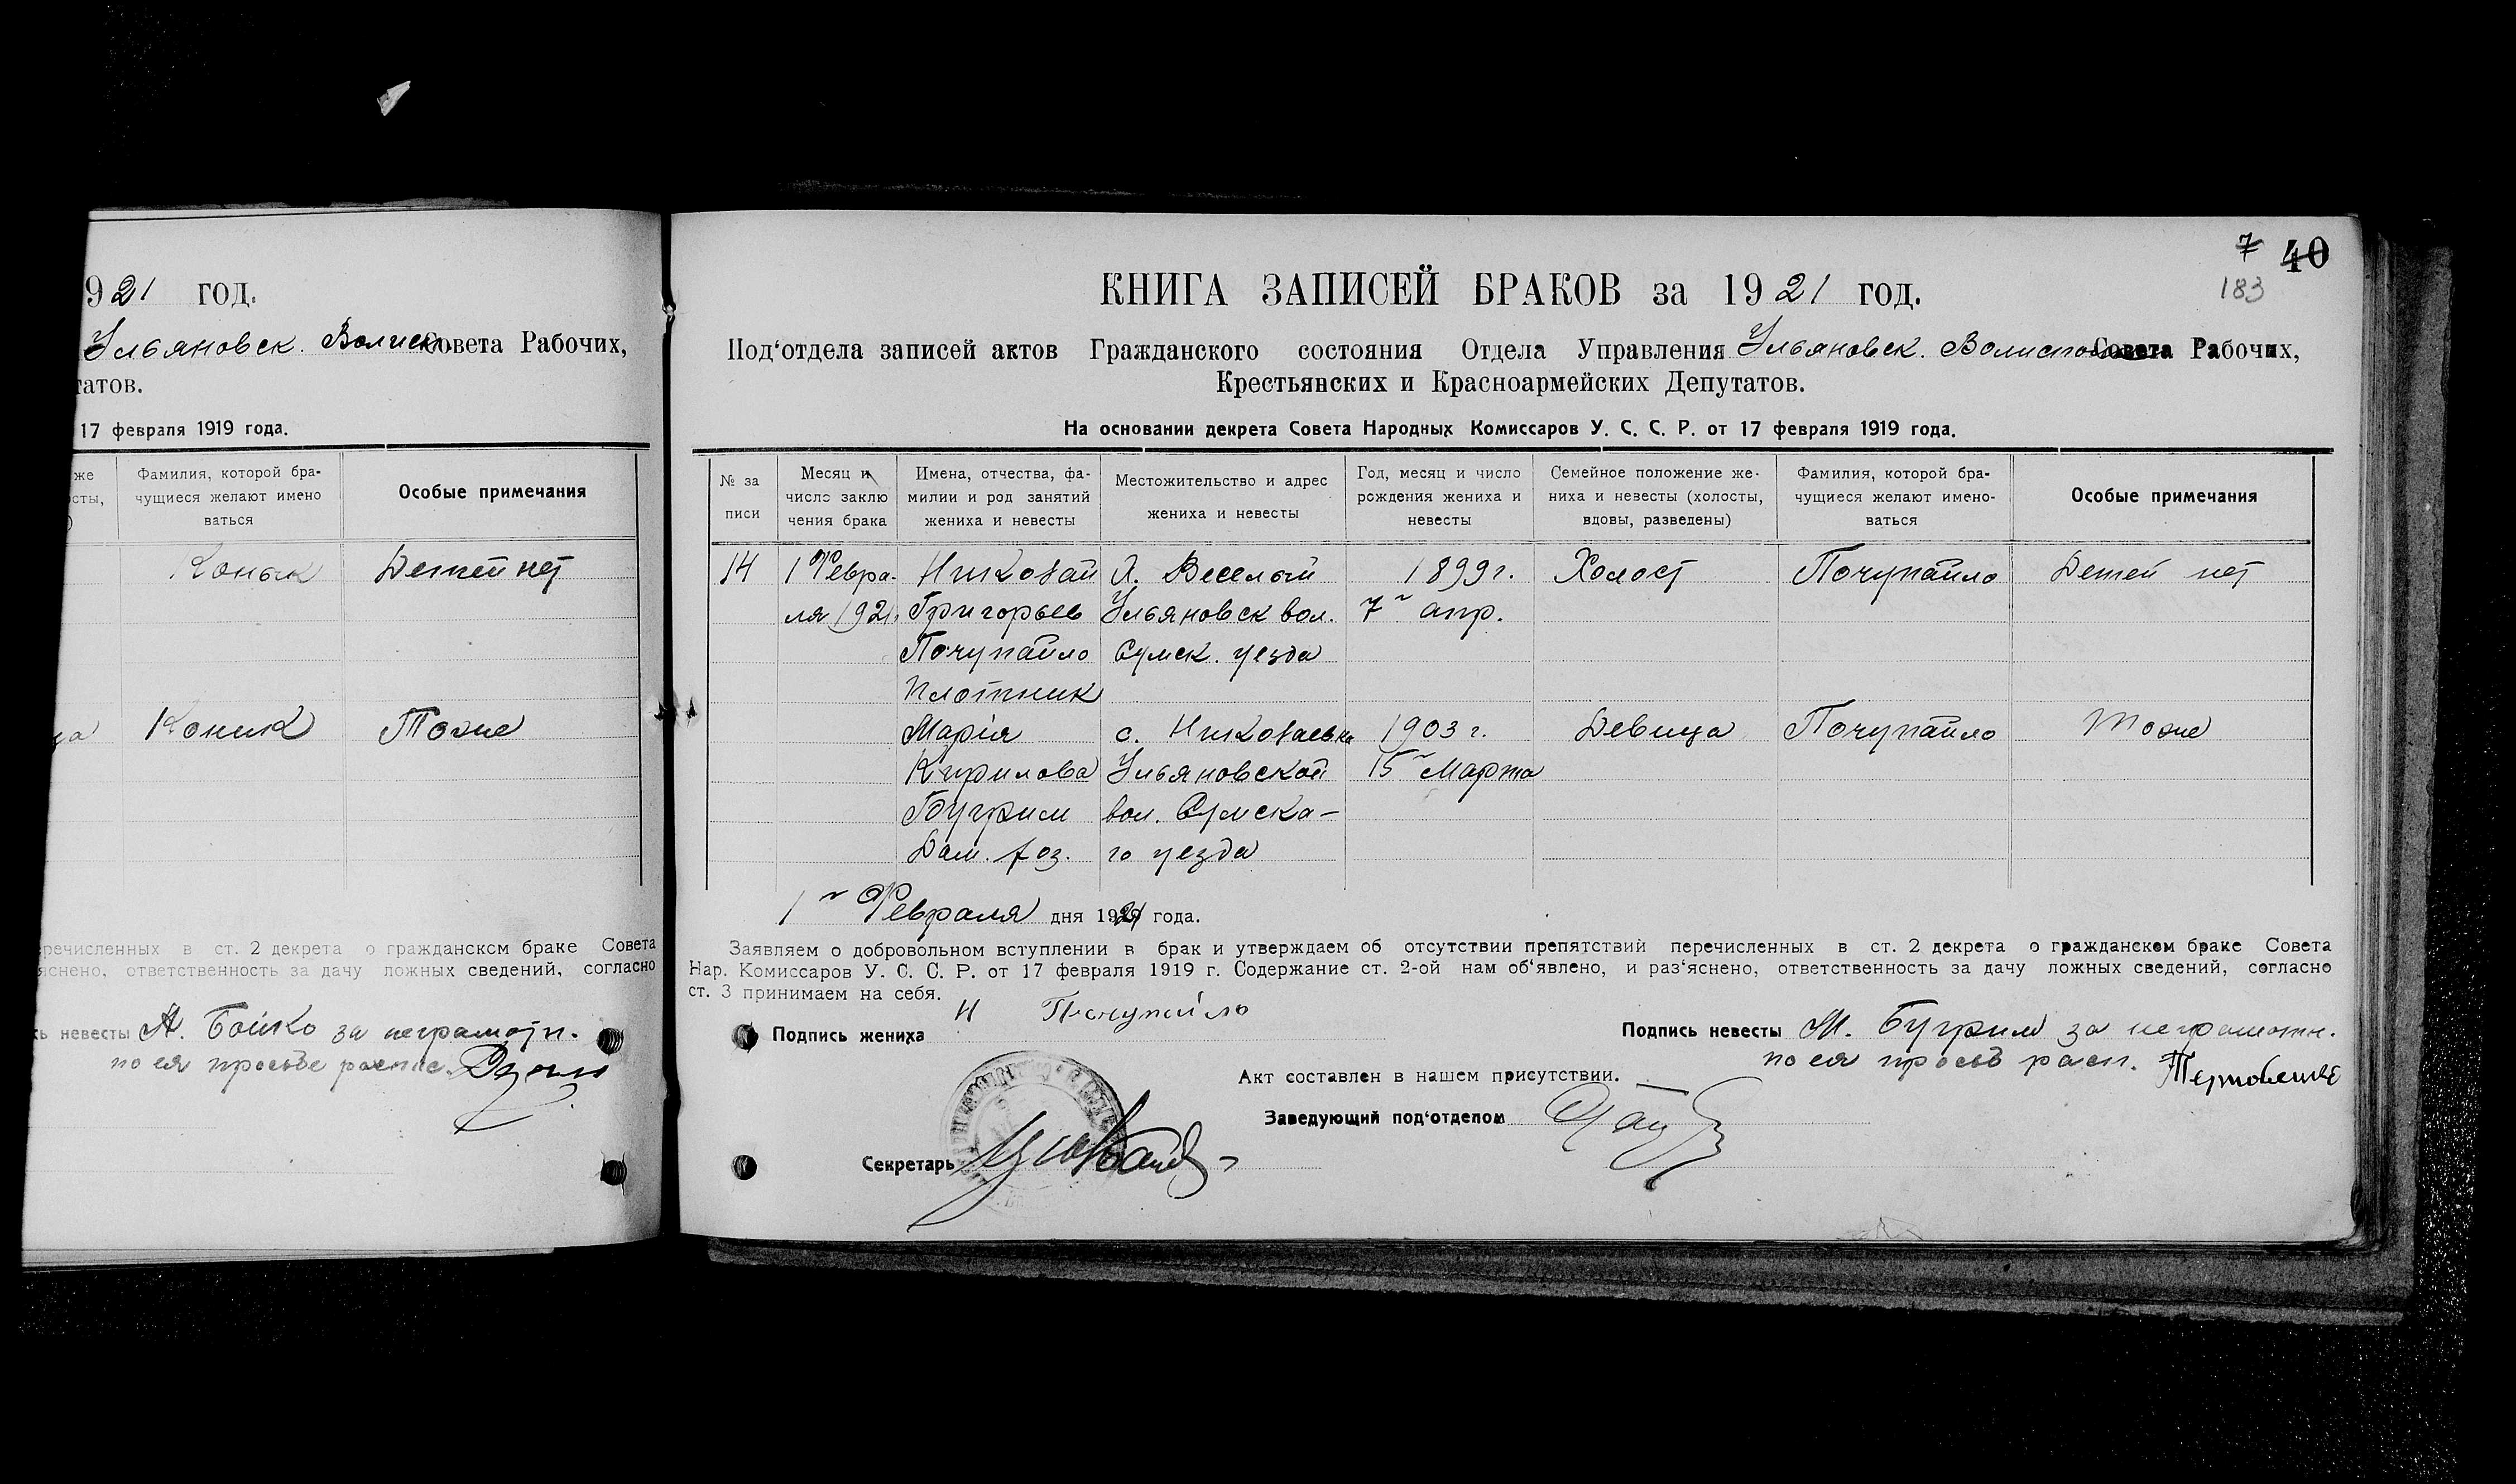 921 год.
Ульяновск. Волиск. Совета Рабочих,
татов.
17 февраля 1919 года.
же
сты,
)
Фамилия, которой бра-
чущиеся желают имено
ваться
Особые примечания
Коньк
Детей нет
ца
Коник
Тоже
еречисленных в ст. 2 декрета о гражданском браке Совета
яснено, ответственность за дачу ложных сведений, согласно
ь невесты А. Бойко за неграмотн.
по ея просьбе распис.
7 40
183
КНИГА ЗАПИСЕЙ БРАКОВ за 1921 год.
Под'отдела записей актов Гражданского состояния Отдела Управления Ульяновск. Волисполкома Совета Рабочих,
Крестьянских и Красноармейских Депутатов.
На основании декрета Совета Народных Комиссаров У. С. С. Р. от 17 февраля 1919 года.
№ за
писи
Месяц и
число заклю
чения брака
Имена, отчества, фа-
милии и род занятий
жениха и невесты
Местожительство и адрес
жениха и невесты
Год, месяц и число
рождения жениха и
невесты
Семейное положение же-
ниха и невесты (холосты,
вдовы, разведены)
Фамилия, которой бра-
чущиеся желают имено-
ваться
Особые примечания
14 1 Февра- Николай Х. Веселый 1899 г. Холост Почупайло Детей нет
ля 1921 Григорьев Ульяновск вол. 7 апр.
Почупайло Сумск. уезда
Плотник
Марія с. Николаевка 1903 г. Девица Почупайло Тоже
Кирилова Ульяновской 15 Марта
Бугрим вол. Сумска-
Дом. хоз. го уезда
1 Февраля дня 1921 года.
Заявляем о добровольном вступлении в брак и утверждаем об отсутствии препятствий перечисленных в ст. 2 декрета о гражданском браке Совета
Нар. Комиссаров У. С. С. Р. от 17 февраля 1919 г. Содержание ст. 2-ой нам об'явлено, и раз'яснено, ответственность за дачу ложных сведений, согласно
ст. 3 принимаем на себя.
Подпись жениха Н Почупайло
Подпись невесты М. Бугрим за неграмотн.
по ея просьб расп.
Акт составлен в нашем присутствии.
Заведующий под'отделом
Секретарь